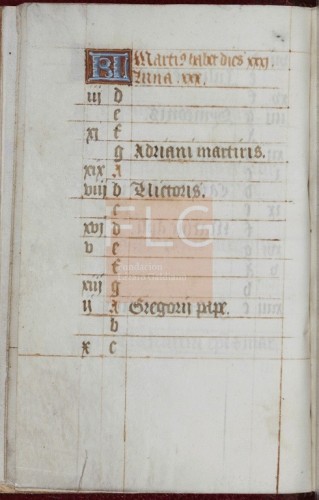 KL Martis habet dies xxxi.
Luna xxx.
iii d
e
xi f
g Adriani martiris.
xix A
viii b Victoris.
c
xvi d
v e
f
xiii g
ii A Gregorii pape.
b
x c
FLG
Fundación